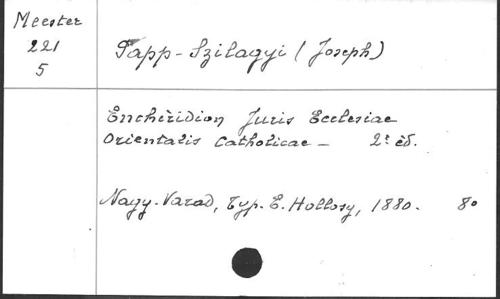 Meester
221
5
Papp-Szilagyi (Joseph)
Enchiridion Juris Ecclesiae
Orientalis Catholicae - 2e éd.
Nagy-Varad, typ. E. Hollosy, 1880. 8°